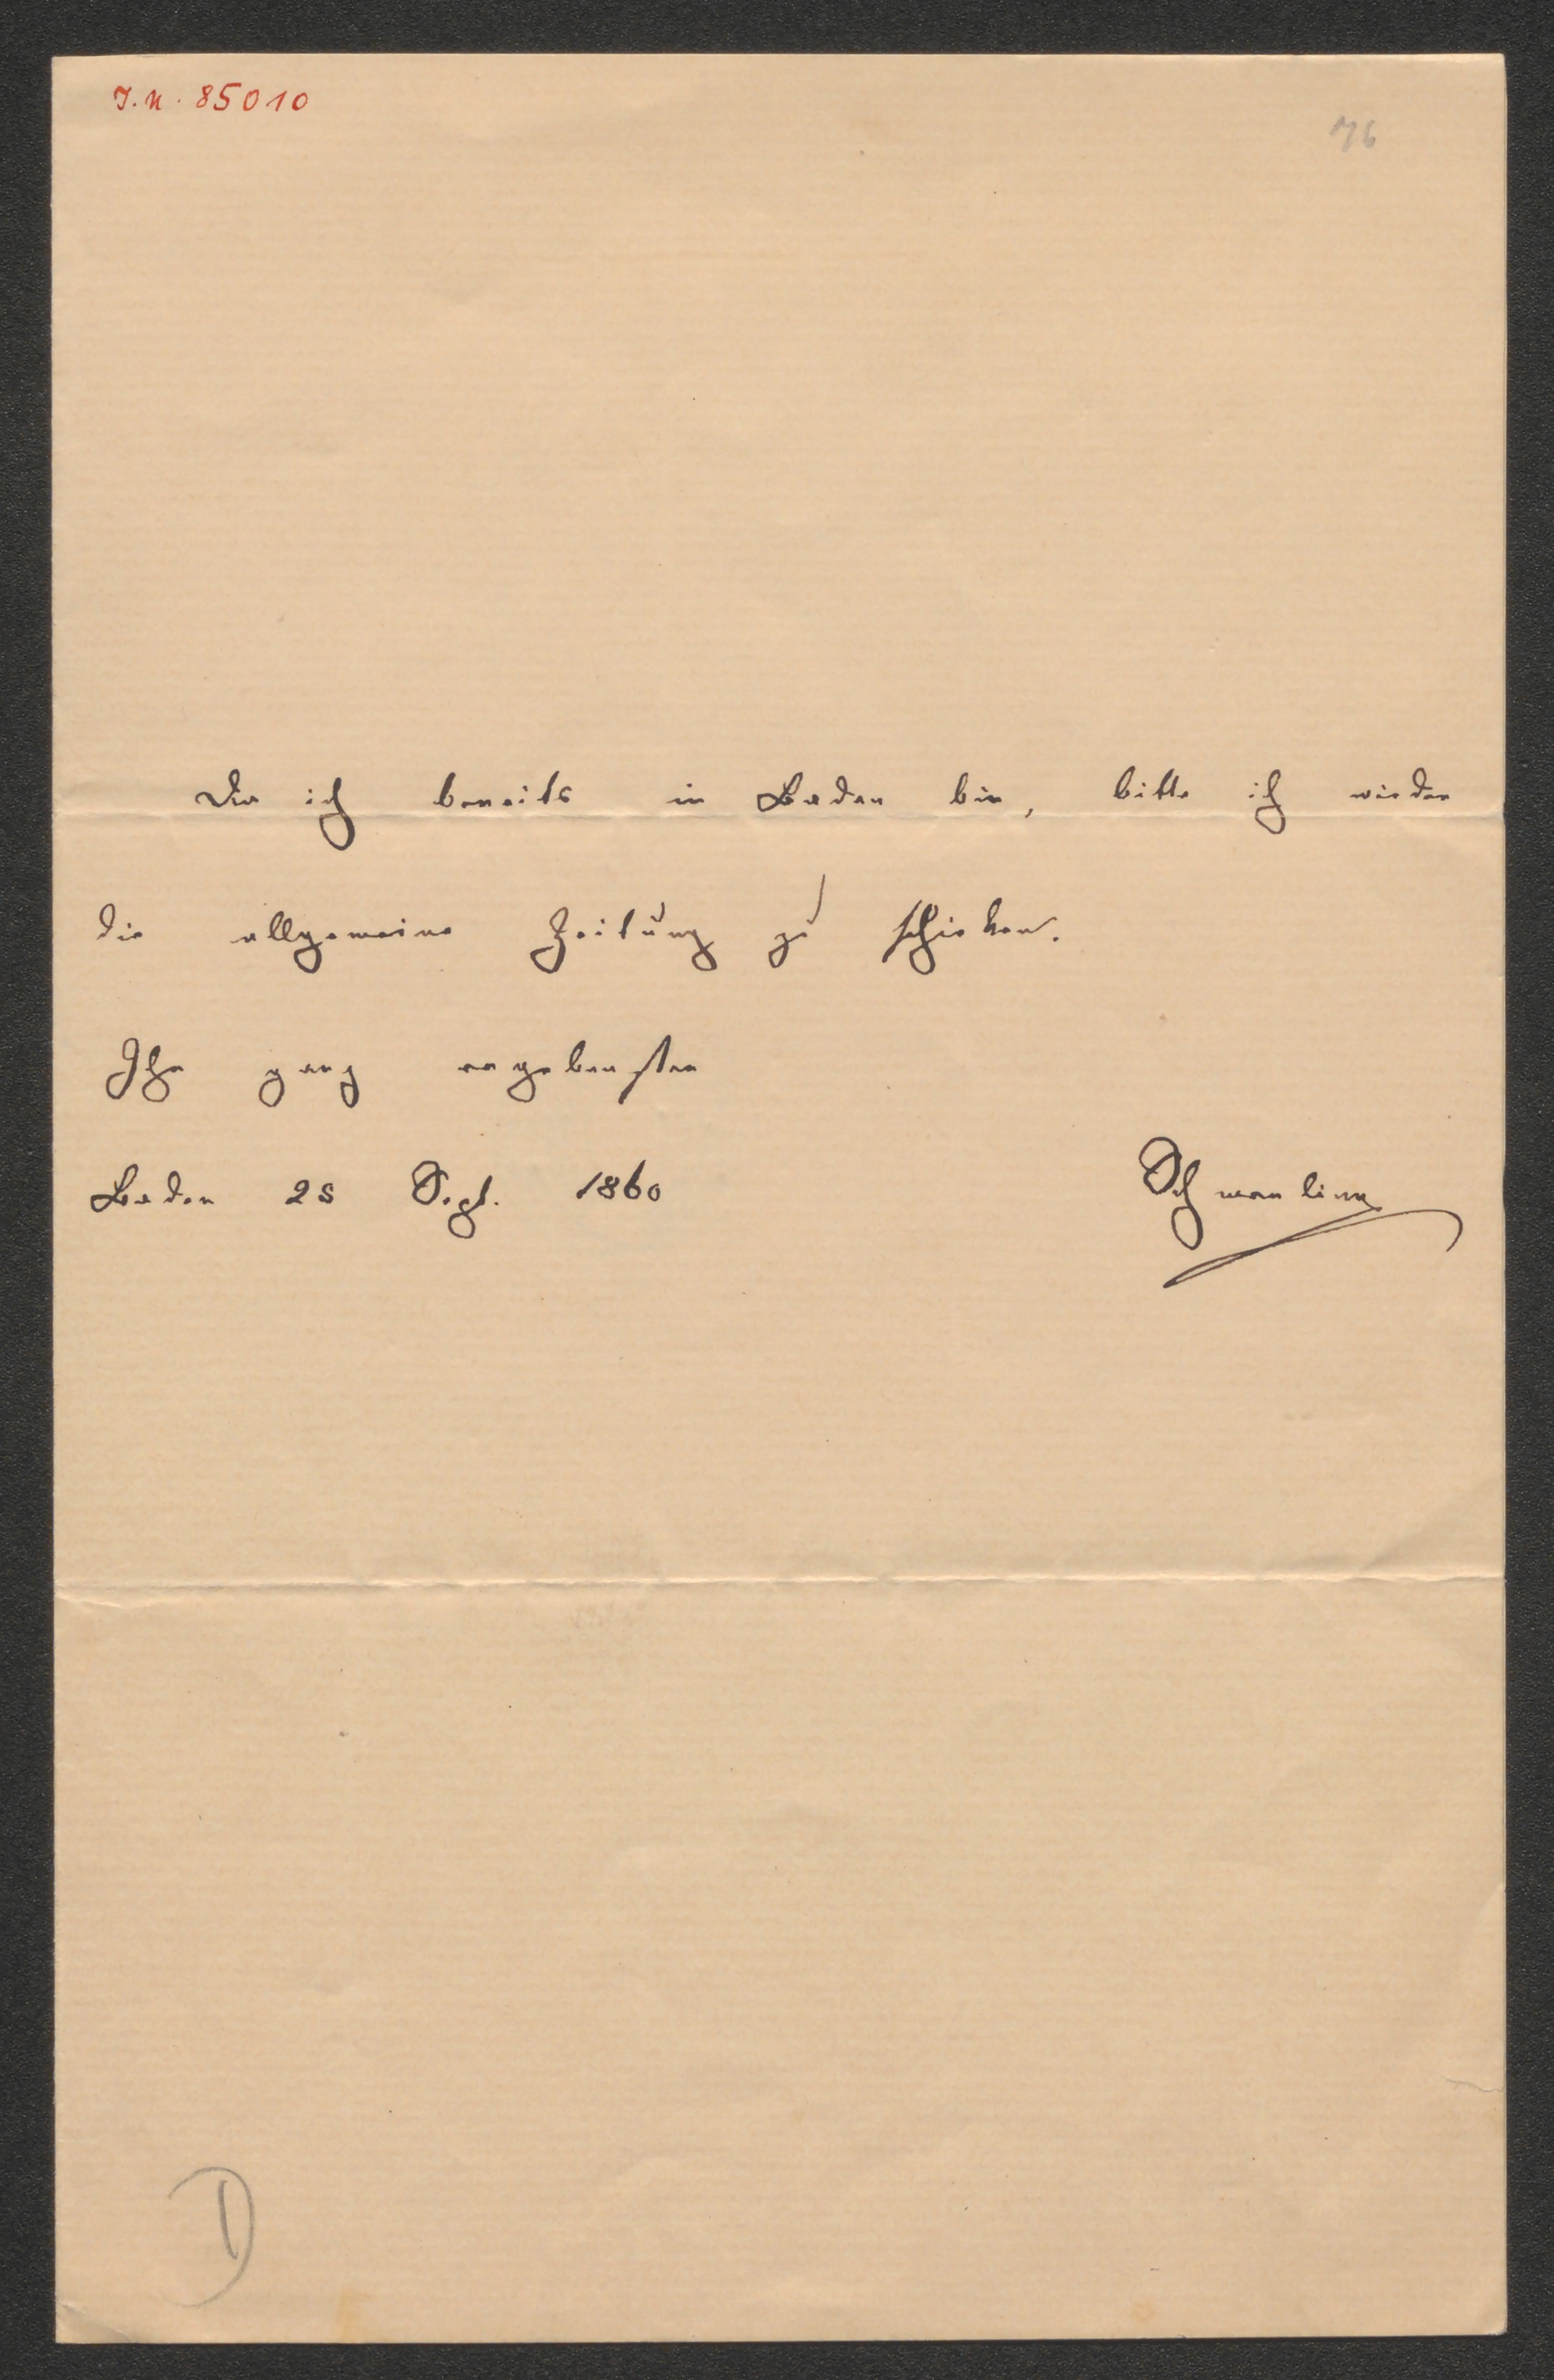 I.N. 85010
76
Da ich bereits in Baden bin, bitte ich wieder
die allgemeine Zeitung zu schicken.
Ihr ganz ergebenster
Baden 25 Sept. 1860
D